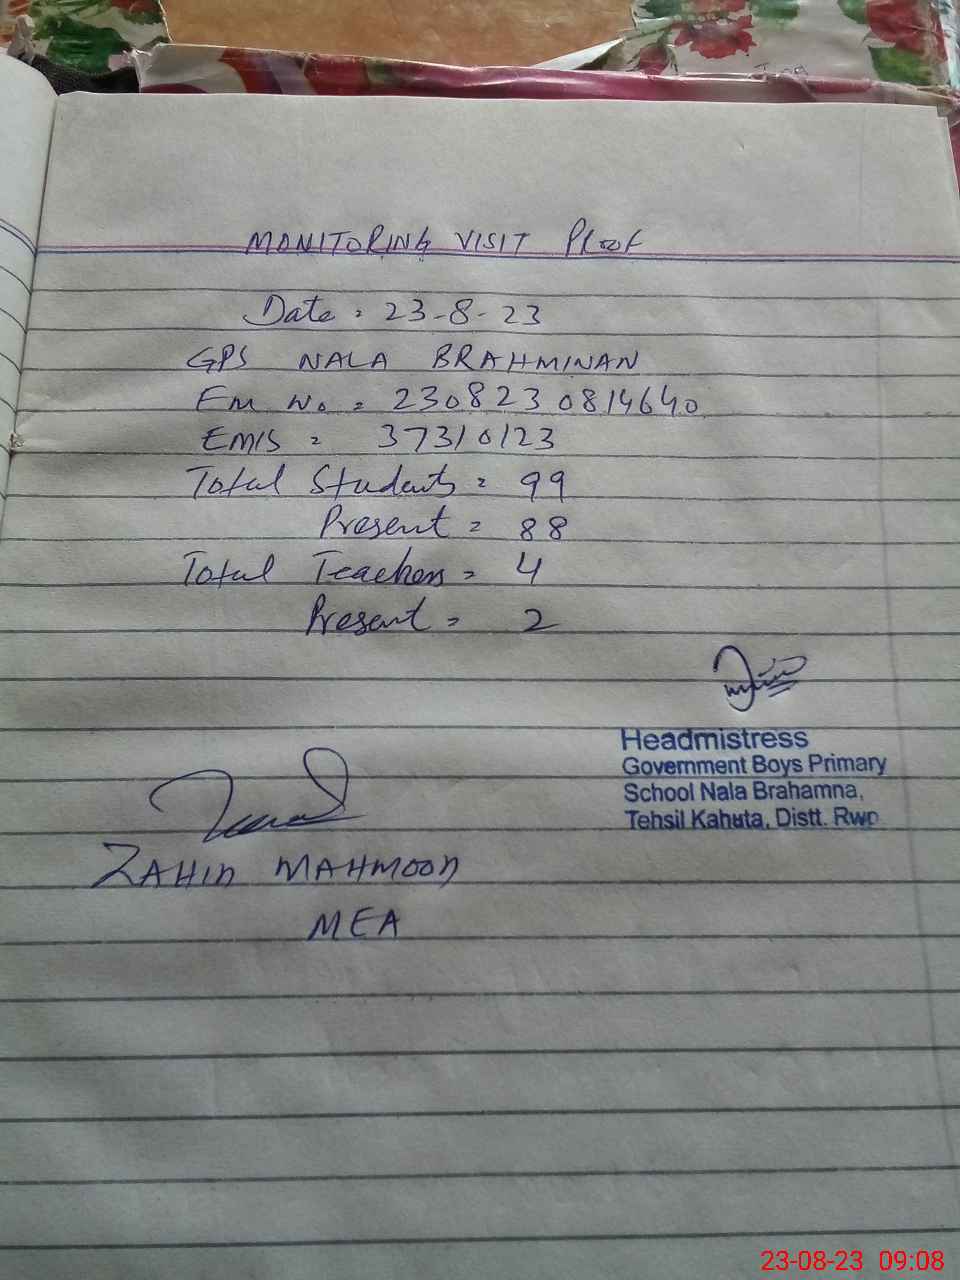 MONITORING VISIT Proof
Date = 23-8-23
GPS NALA BRAHMINAN
EM No = 230823 0814640
EMIS = 37310123
Total Students = 99
Present = 88
Total Teachers = 4
Present = 2
Headmistress
Government Boys Primary
School Nala Brahamna,
Tehsil Kahuta, Distt. Rwp
ZAHID MAHMOOD
MEA
23-08-23 09:08